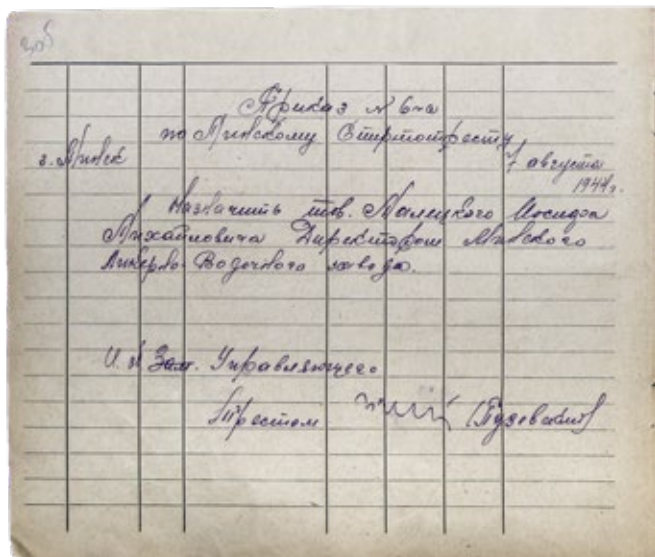 Приказ № 6-а
по Минскому Спиртотресту
г. Минск
7 августа
1944 г.
Назначить тов. Малецкого Иосифа
Михайловича Директором Минского
Ликеро-Водочного завода.
Зам. Управляющего
Трестом